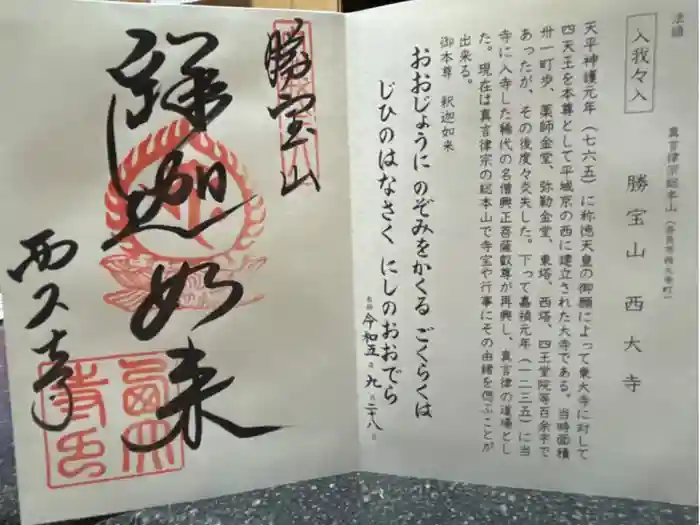 法語
入我々入
真言律宗総本山（奈良市西大寺町）
勝宝山 西大寺
天平神護元年（七六五）に称徳天皇の御願によって東大寺に対して
四天王を本尊として平城京の西に建立された大寺である。当時面積
卅一町歩、薬師金堂、弥勒金堂、東塔、西塔、四王堂院等百余宇で
あったが、その後度々炎失した。下って嘉禎元年（一二三五）に当
寺に入寺した稀代の名僧興正菩薩叡尊が再興し、真言律の道場とし
た。現在は真言律宗の総本山で寺宝や行事にその由緒を偲ぶことが
出来る。
御本尊 釈迦如来
おおじょうに のぞみをかくる ごくらくは
じひのはなさく にしのおおでら
令和五年九月二十八日
勝宝山
釋迦如来
西大寺